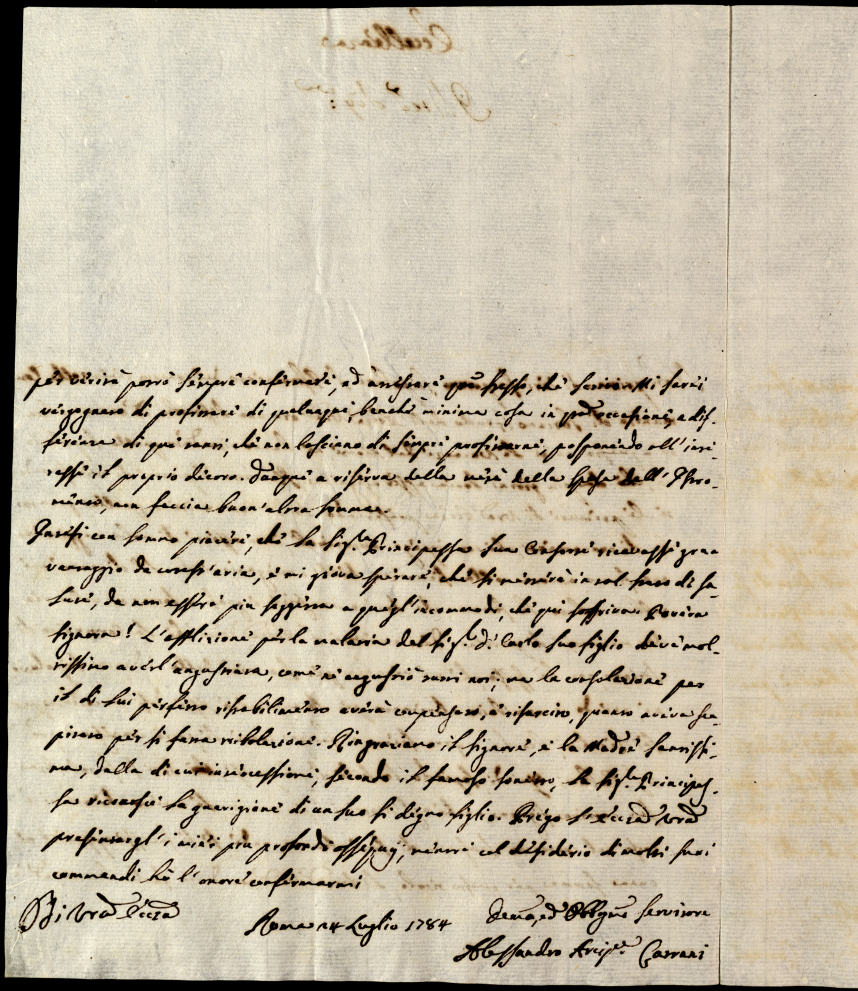 per verità potrò sempre confermare, ed attestare que stesso, che scrivo. Mi sarei
vergognato di profittare di qualunque, benchè minima cosa in pre occasione, a dif-
ferenza di quei tanti, che non lasciano di sempre profittarne, posponendo all'inte-
resse il proprio decoro. Dunque a riserva della metà della spesa dell'
non faccia buon'altra somma.
Intesi con sommo piacere, che la Sigra Principessa sua Consorte ricavasse gran
vantaggio da cotest'aria, e mi giova sperare, che si metterà in tal stato di sa-
lute, da non essere più soggetta a quegl'incommodi, che qui soffriva. Povera
Signora! L'afflizione per la malatia del Sigr D. Carlo suo figlio deve mol-
tissimo averl'angustiata, come ne angustiò tutti noi; ma la consolazione per
il di lui perfetto ristabilimento averà compensato, e risarcito, quanto aveva pa-
tito per si fatta tribolazione. Ringraziamo il Signore, e la Madre Santissi-
ma, dalla di cui intercessione, secondo il famoso sonetto, la Sigra Principes-
sa riconosce la guarigione di un suo sì degno figlio. Prego l'Eccza Vra
presentargl'i miei più profondi ossequj, mentre col desiderio di molti suoi
commandi hò l'onore confermarmi
Di Vra Eccza
Roma 14 Luglio 1784
Devmo, ed Obblgmo Servitore
Alessandro Arcipte